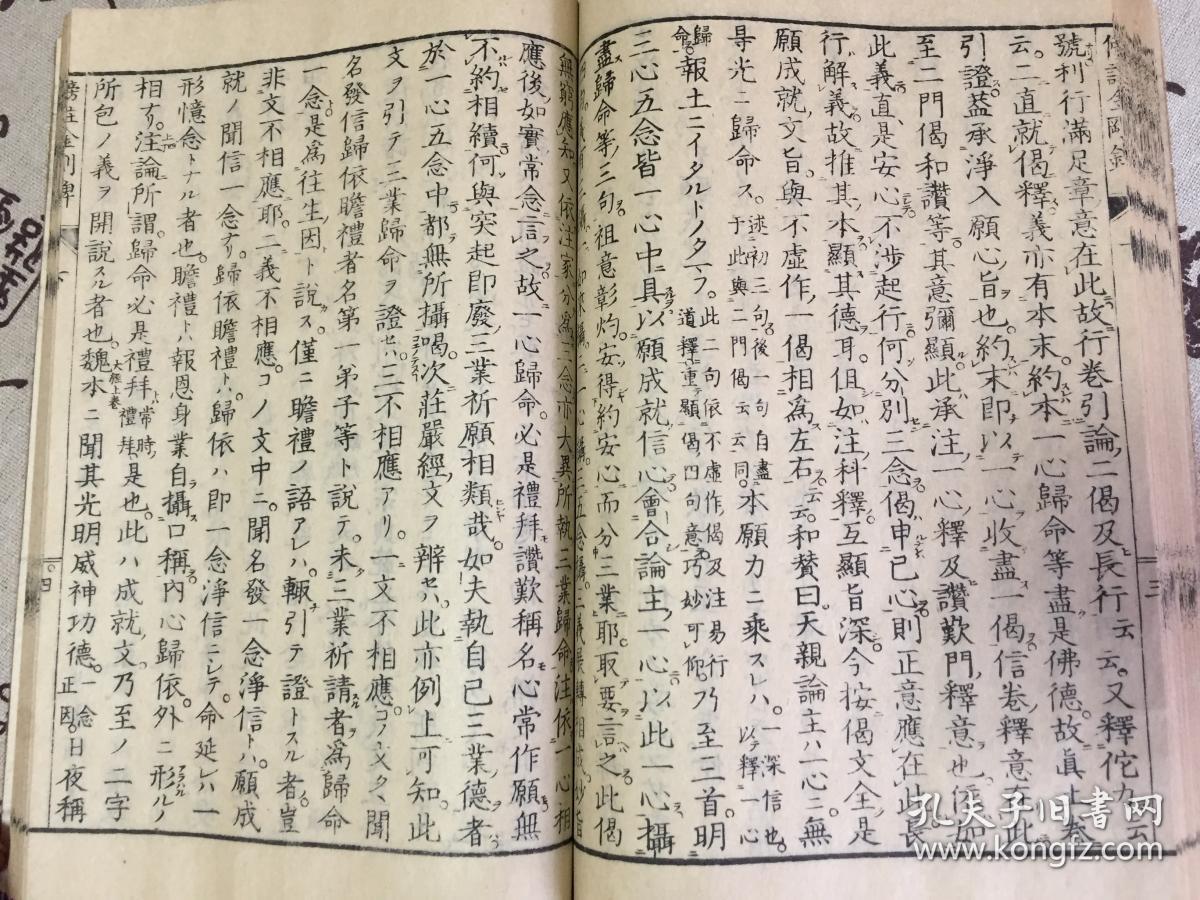 號利行滿足章意在此故行卷引論二偈及長行云云又釋佗力
云云二直就偈釋義亦有本末約本一心歸命等盡是佛德故眞土卷
引證葢承淨入願心旨也約末即以一心收盡一偈信卷釋意在此
至二門偈和讚等其意彌顯此承注一心釋及讚歎門釋意也
此義直是安心不涉起行何分別三念偈申己心則正意應在此長
行解義故推其本顯其德耳但如注科釋互顯旨深今按偈文全是
願成就文旨與不虛作一偈相爲左右云云和賛曰天親論主ハ一心ニ無
导光ニ歸命ス述初三句後一句自盡于此與二門偈云云同本願力ニ乘スレハ一深信也以釋一心
歸命報土ニイタルトノタマフ此二句依不虛作偈及注易行道釋重顯偈四句意巧妙可仰乃至三首明
三心五念皆一心中具以願成就信心會合論主一心以此一心攝
盡歸命等三句祖意彰灼安得約安心而分三業耶取要言之此偈
應後如實常念言之故一心歸命必是禮拜讚歎稱名心常作願無
不約相續何與突起即廢三業祈願相類哉如夫執自己三業德者
於一心五念中都無所攝喝次莊嚴經文ヲ辨セハ此亦例上可知此
文ヲ引テ三業歸命ヲ證セハ三不相應アリ一文不相應コノ文タヽ聞
名發信歸依瞻禮者名第一弟子等ト說テ未三業祈請者爲歸命
一念是爲往生因ト說ス僅ニ瞻禮ノ語アレハ輙引テ證トスル者豈
非文不相應耶二義不相應コノ文中ニ聞名發一念淨信ト八願成
就ノ聞信一念ナリ歸依瞻禮トハ歸依ハ即一念淨信ニシテ命延レハ一
形憶念トナル者也瞻禮ハ報恩身業自攝口稱內心歸依外ニ形ルノ
相ナリ注論所謂歸命必是禮拜常時禮拜是也此ハ成就文乃至ノ二字
所包ノ義ヲ開說スル者也魏本大經上卷ニ聞其光明威神功德一念正因日夜稱
四
三
孔夫子旧书网
www.kongfz.com